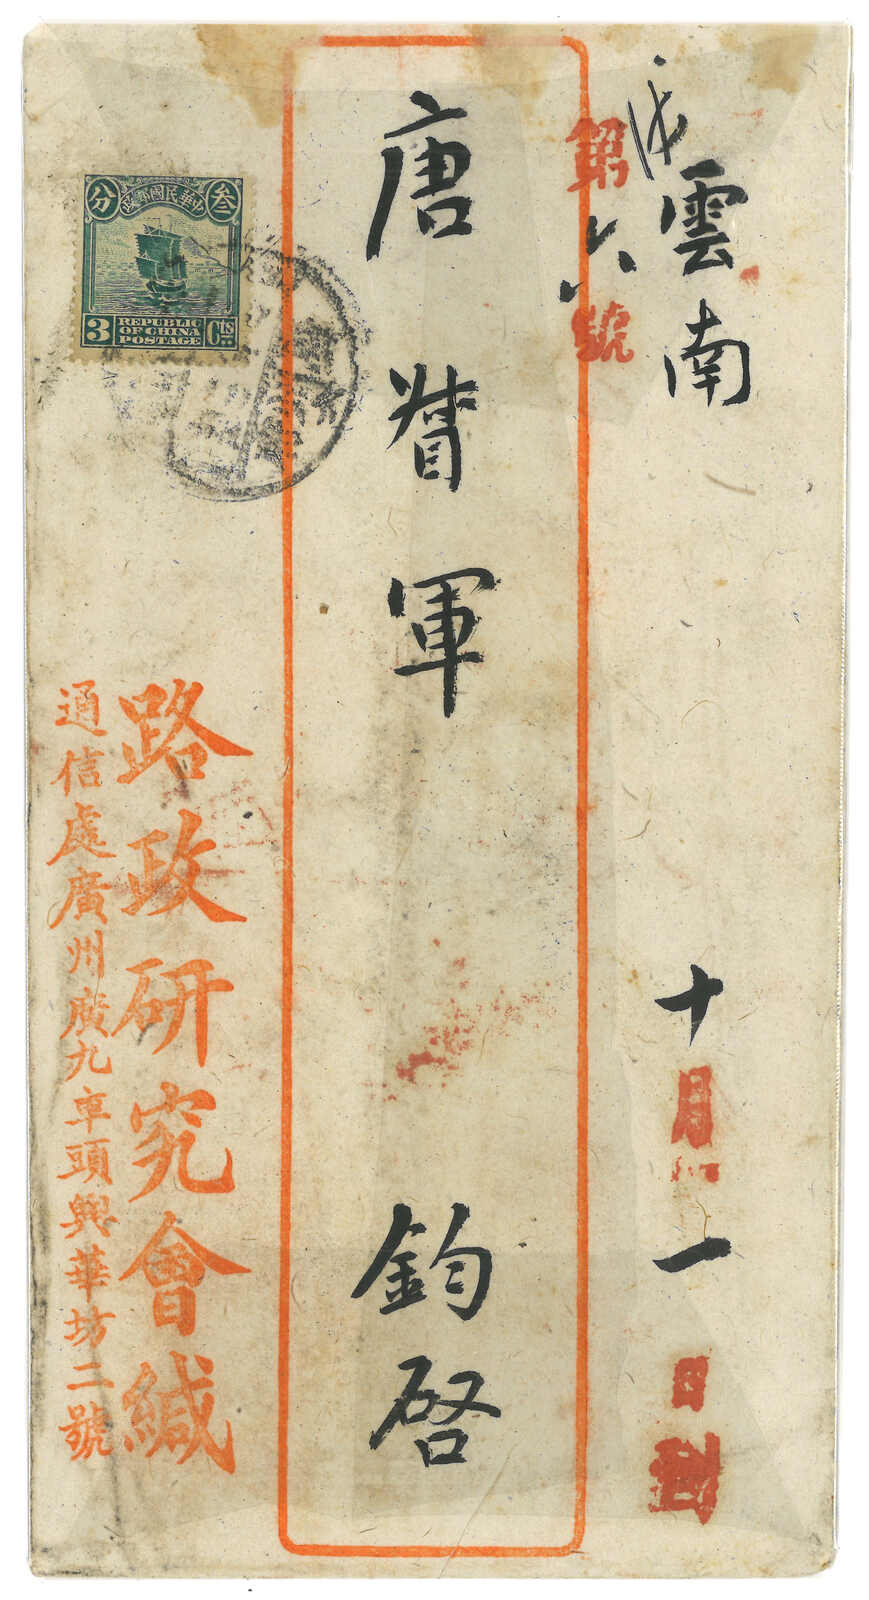 雲南
十月一日到
第六號
唐督軍
鈞啓
叁 中華民國郵政 分
3 REPUBLIC OF CHINA POSTAGE Cts
路政研究會緘
通信處廣州廣九車頭興華坊二號